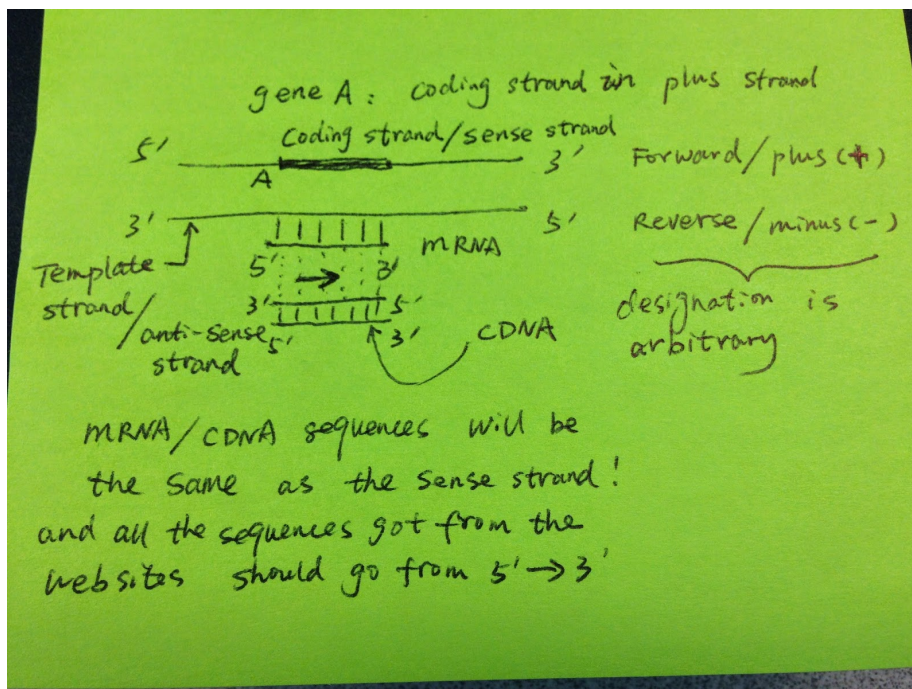 gene A: coding strand in plus strand
Coding strand/sense strand
5' 3' Forward/plus(+)
A
3' 5' Reverse/minus(-)
mRNA
5' 3'
Template
strand/
3' 5'
anti-sense
strand
5' 3' CDNA
designation is
arbitrary
mRNA/CDNA sequences will be
the same as the sense strand!
and all the sequences got from the
websites should go from 5'→3'